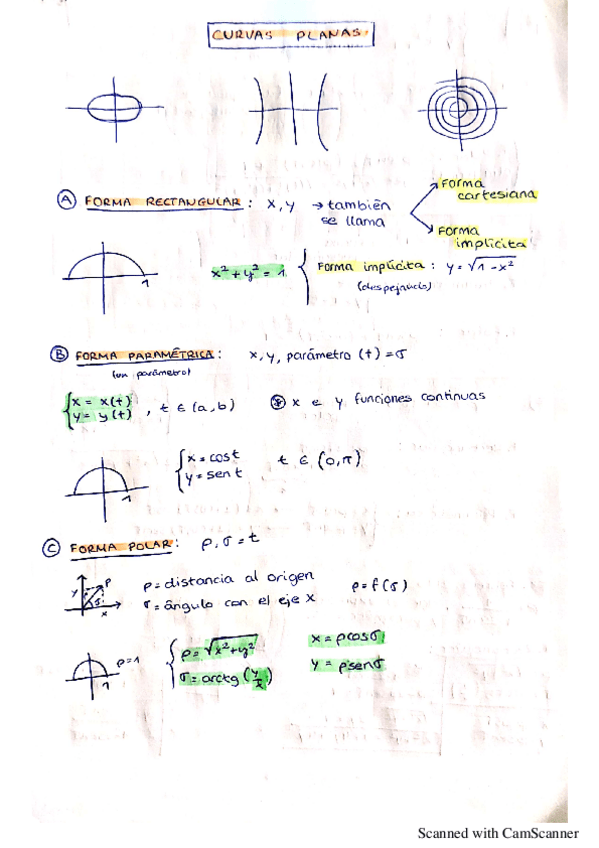 CURVAS PLANAS
Ⓐ FORMA RECTANGULAR : x, y → también se llama
Forma cartesiana
Forma implícita
1
x² + y² = 1
Forma implícita : y = √1 - x²
(despejando)
Ⓑ FORMA PARAMÉTRICA : x, y, parámetro (t) = σ
(un parámetro)
{ x = x(t)
y = y(t) , t ∈ (a, b)
⊛ x e y funciones continuas
{ x = cost
y = sen t
t ∈ (0, π)
1
Ⓒ FORMA POLAR : ρ, σ = t
y
P
x
ρ = distancia al origen
σ = ángulo con el eje x
ρ = f(σ)
ρ = 1
1
{ ρ = √x² + y²
σ = arctg (y/x)
x = ρ cosσ
y = ρ senσ
Scanned with CamScanner